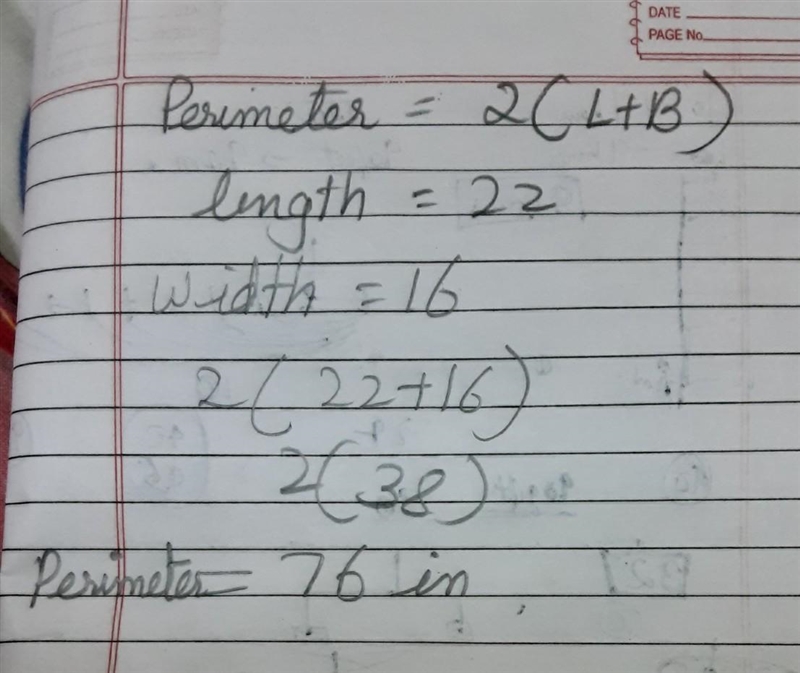 DATE
PAGE No.
Perimeter = 2(L+B)
length = 22
width = 16
2(22+16)
2(38)
Perimeter= 76 in